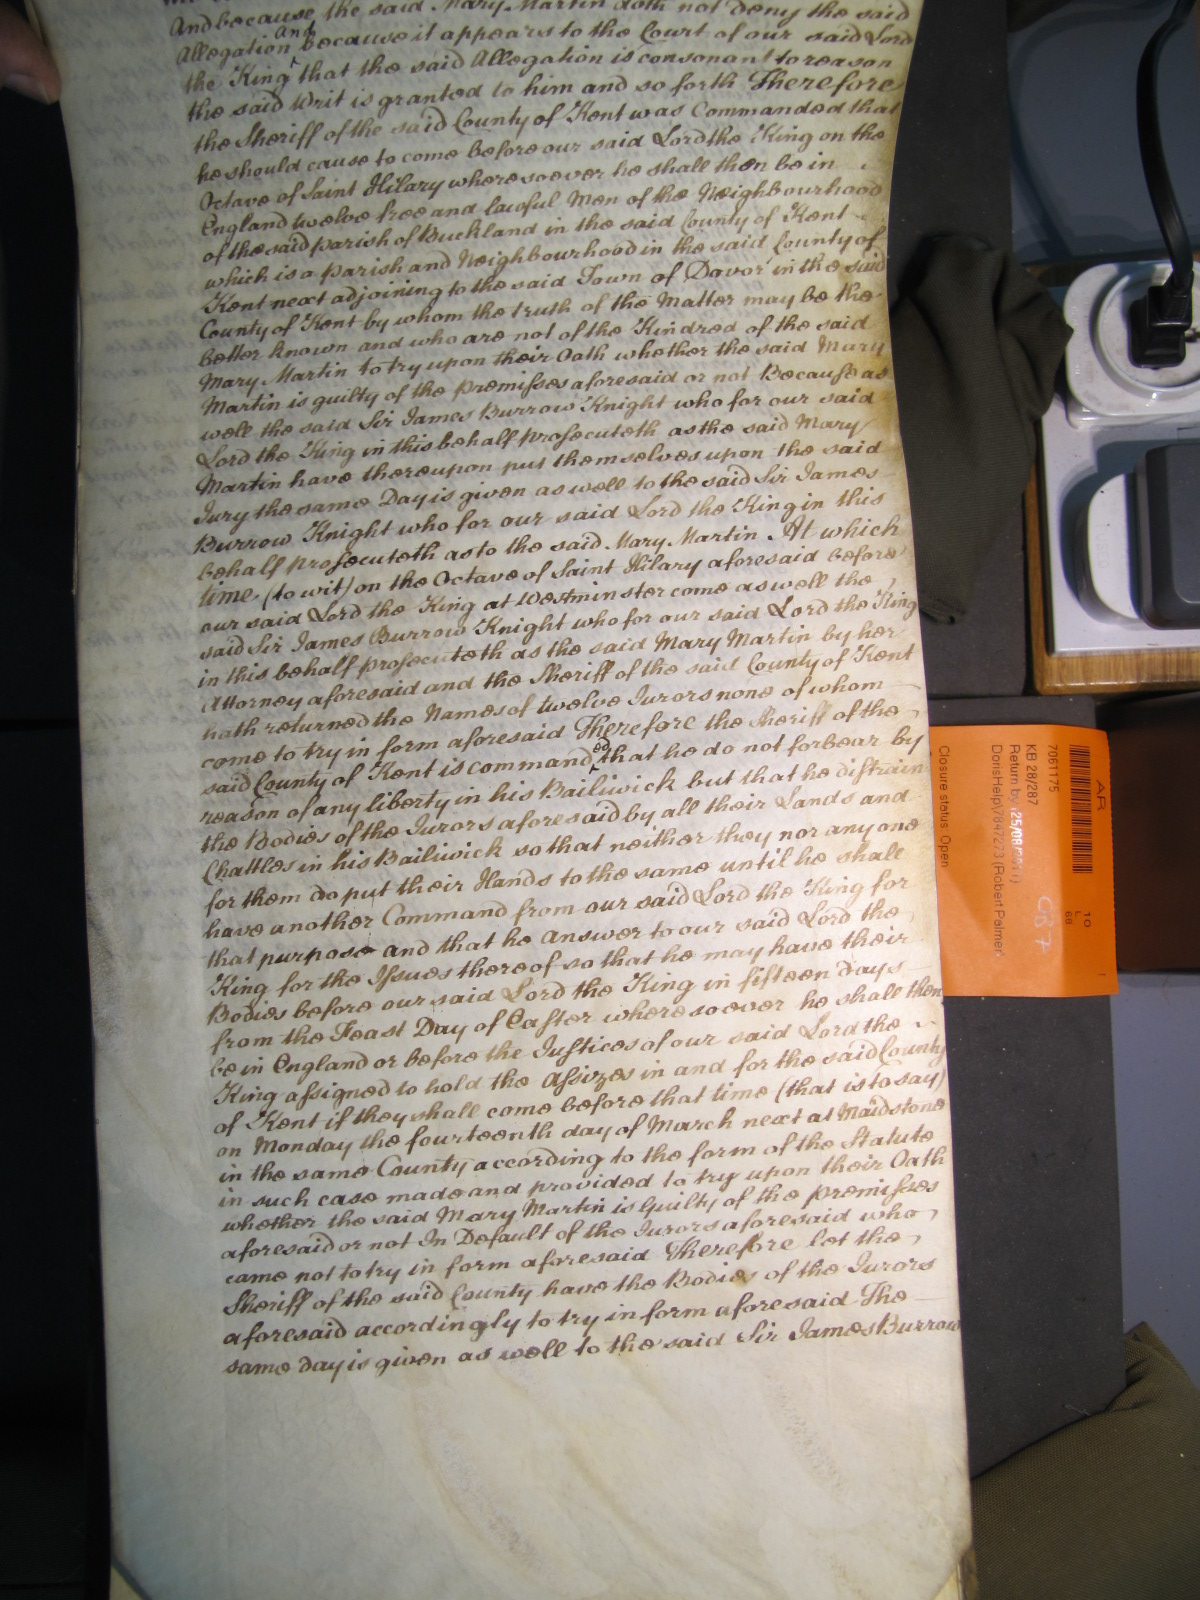 And because the said Mary Martin doth not deny the said
Allegation And because it appears to the Court of our said Lord
the King that the said Allegation is consonant to reason
the said Writ is granted to him and so forth Therefore
the Sheriff of the said County of Kent was Commanded that
he should cause to come before our said Lord the King on the
Octave of Saint Hilary wheresoever he shall then be in
England twelve free and lawful Men of the Neighbourhood
of the said parish of Buckland in the said County of Kent
which is a parish and Neighbourhood in the said County of
Kent next adjoining to the said Town of Dover in the said
County of Kent by whom the truth of the Matter may be the
better known and who are not of the Kindred of the said
Mary Martin to try upon their Oath whether the said Mary
Martin is guilty of the premisses aforesaid or not Because as
well the said Sir James Burrow Knight who for our said
Lord the King in this behalf prosecuteth as the said Mary
Martin have thereupon put themselves upon the said
Jury the same Day is given as well to the said Sir James
Burrow Knight who for our said Lord the King in this
behalf prosecuteth as to the said Mary Martin At which
time (to wit) on the Octave of Saint Hilary aforesaid before
our said Lord the King at Westminster come as well the
said Sir James Burrow Knight who for our said Lord the King
in this behalf prosecuteth as the said Mary Martin by her
Attorney aforesaid and the Sheriff of the said County of Kent
hath returned the Names of twelve Jurors none of whom
come to try in form aforesaid Therefore the Sheriff of the
said County of Kent is commanded that he do not forbear by
reason of any liberty in his Bailiwick but that he distrain
the Bodies of the Jurors aforesaid by all their Lands and
Chattles in his Bailiwick so that neither they nor any one
for them do put their Hands to the same until he shall
have another Command from our said Lord the King for
that purpose and that he Answer to our said Lord the
King for the Issues thereof so that he may have their
Bodies before our said Lord the King in fifteen days
from the Feast Day of Easter wheresoever he shall then
be in England or before the Justices of our said Lord the
King assigned to hold the Assizes in and for the said County
of Kent if they shall come before that time (that is to say)
on Monday the fourteenth day of March next at Maidstone
in the same County according to the form of the Statute
in such case made and provided to try upon their Oath
whether the said Mary Martin is Guilty of the premisses
aforesaid or not In Default of the Jurors aforesaid who
came not to try in form aforesaid Therefore let the
Sheriff of the said County have the Bodies of the Jurors
aforesaid accordingly to try in form aforesaid The
same day is given as well to the said Sir James Burrow
AR
7061175
KB 28/287
Return by (25/08/2011)
DorisHelp\7847273 (Robert Palmer)
Closure status Open
10
L
68